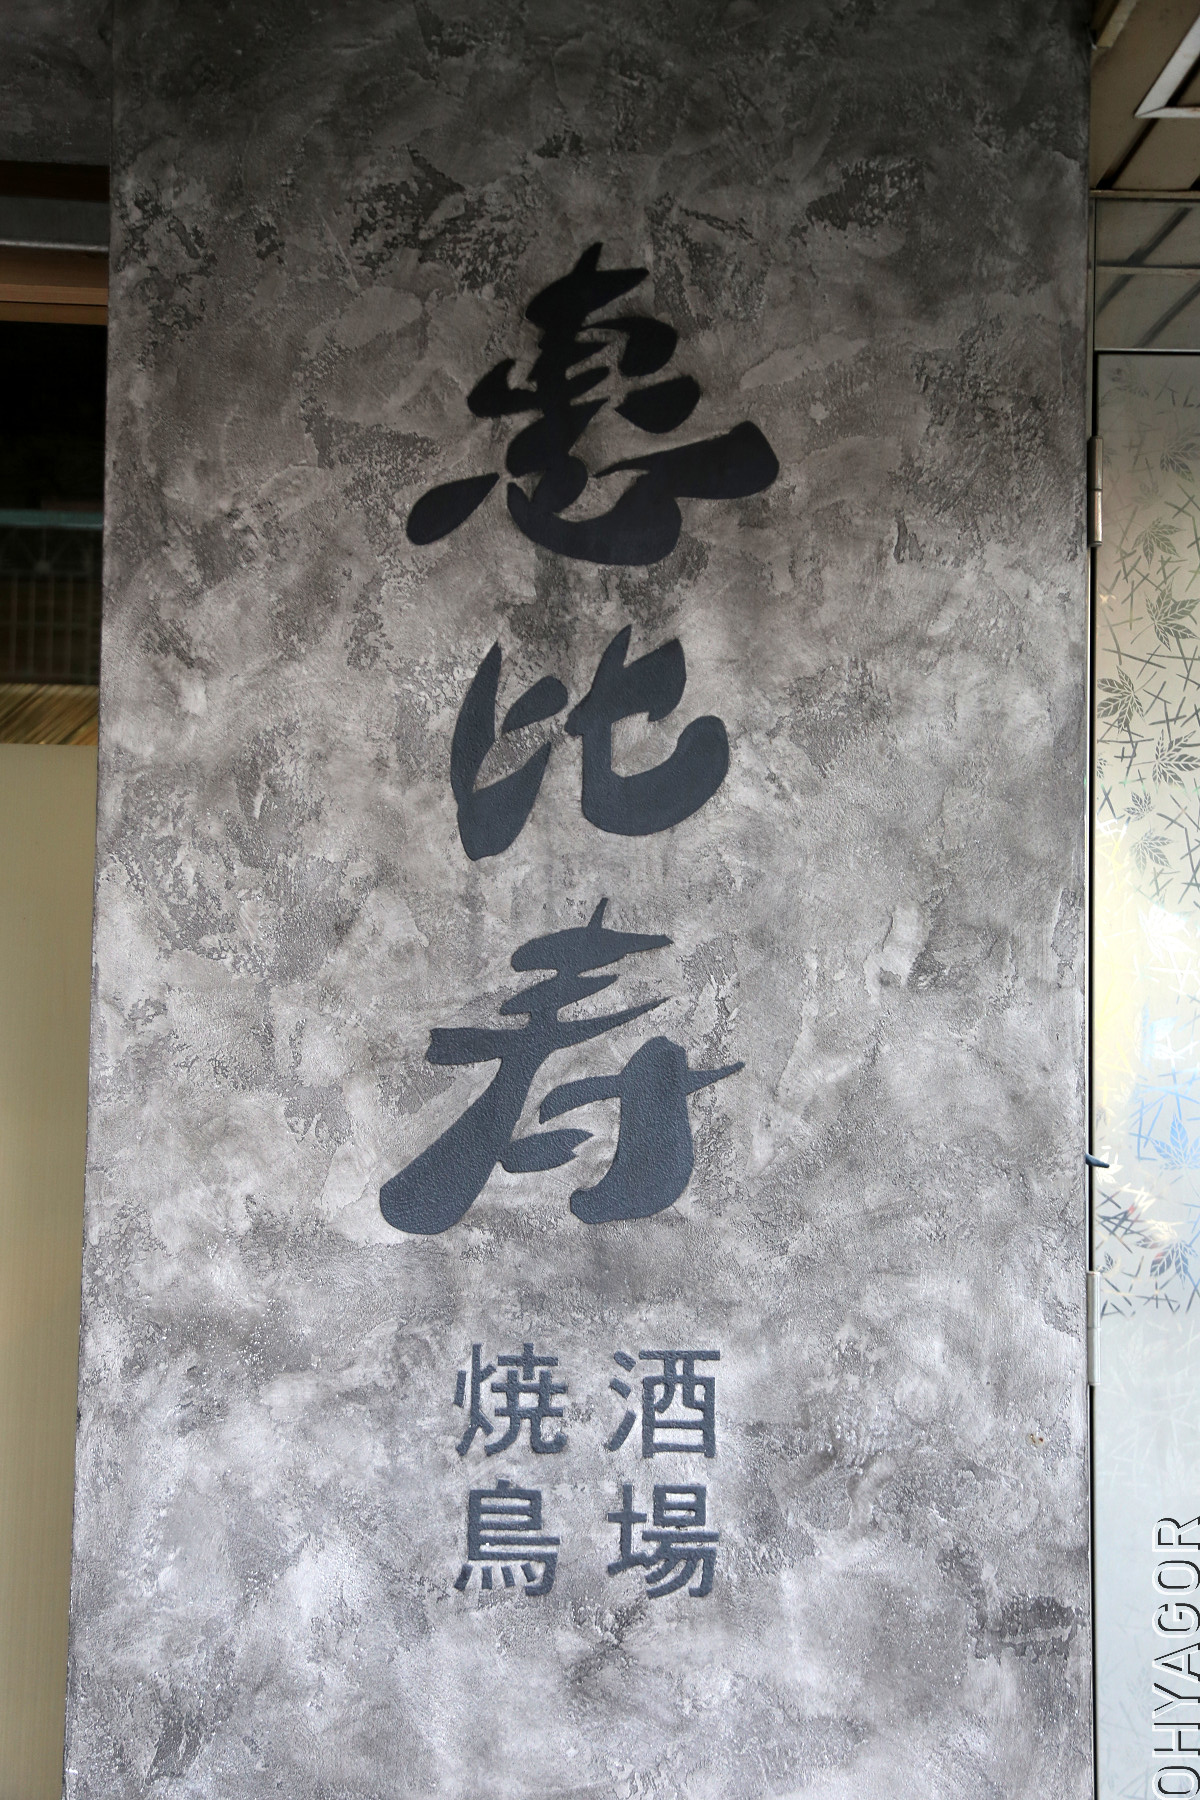 恵比寿
酒場
焼鳥
OHYAGOR